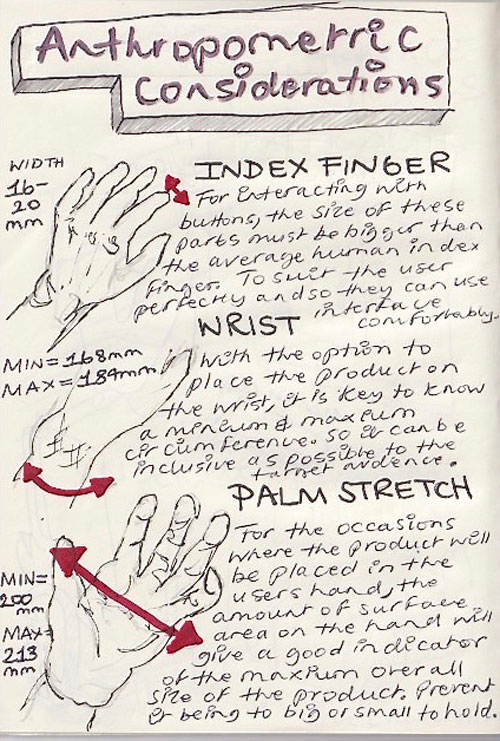 Anthropometric
Considerations
WIDTH
16-
20
mm
INDEX FINGER
For interacting with
buttons, the size of these
parts must be bigger than
the average human index
finger. To suit the user
perfectly and so they can use
interface
comfortably.
WRIST
MIN=168mm
MAX=184mm
With the option to
place the product on
the wrist, it is key to know
a minium & maxium
circumference. So it can be
inclusive as possible to the
target audence.
PALM STRETCH
MIN=
200
mm
MAX=
213
mm
For the occasions
where the product will
be placed in the
users hand, the
amount of surface
area on the hand will
give a good indicator
of the maxium overall
size of the product. Prevent
it being to big or small to hold.